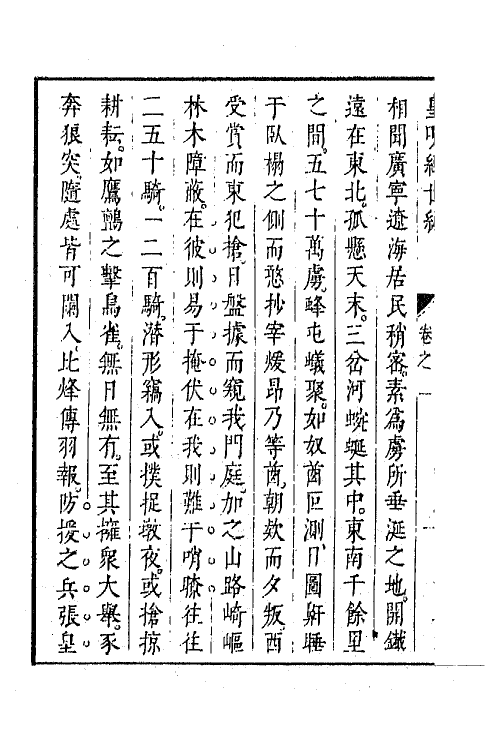 皇明經世編 卷之一
相聞廣寧遼海居民稍密素為虜所垂涎之地。開鐵
遠在東北。孤懸天末。三岔河蜿蜒其中。東南千餘里
之間。五七十萬虜。蜂屯蟻聚。如奴酋叵測。日圖鼾睡
于臥榻之側而憨抄宰煖昂乃等酋。朝欵而夕叛。西
受賞而東犯搶。日盤據而窺我門庭。加之山路崎嶇
林木障蔽。在彼則易于掩伏在我則難于哨瞭往往
二五十騎。一二百騎。潛形竊入。或撲捉墩夜。或搶掠
耕耘。如鷹鸇之擊鳥雀。無日無有。至其擁衆大舉。豕
奔狼突隨處皆可闌入比烽傳羽報。防援之兵張皇